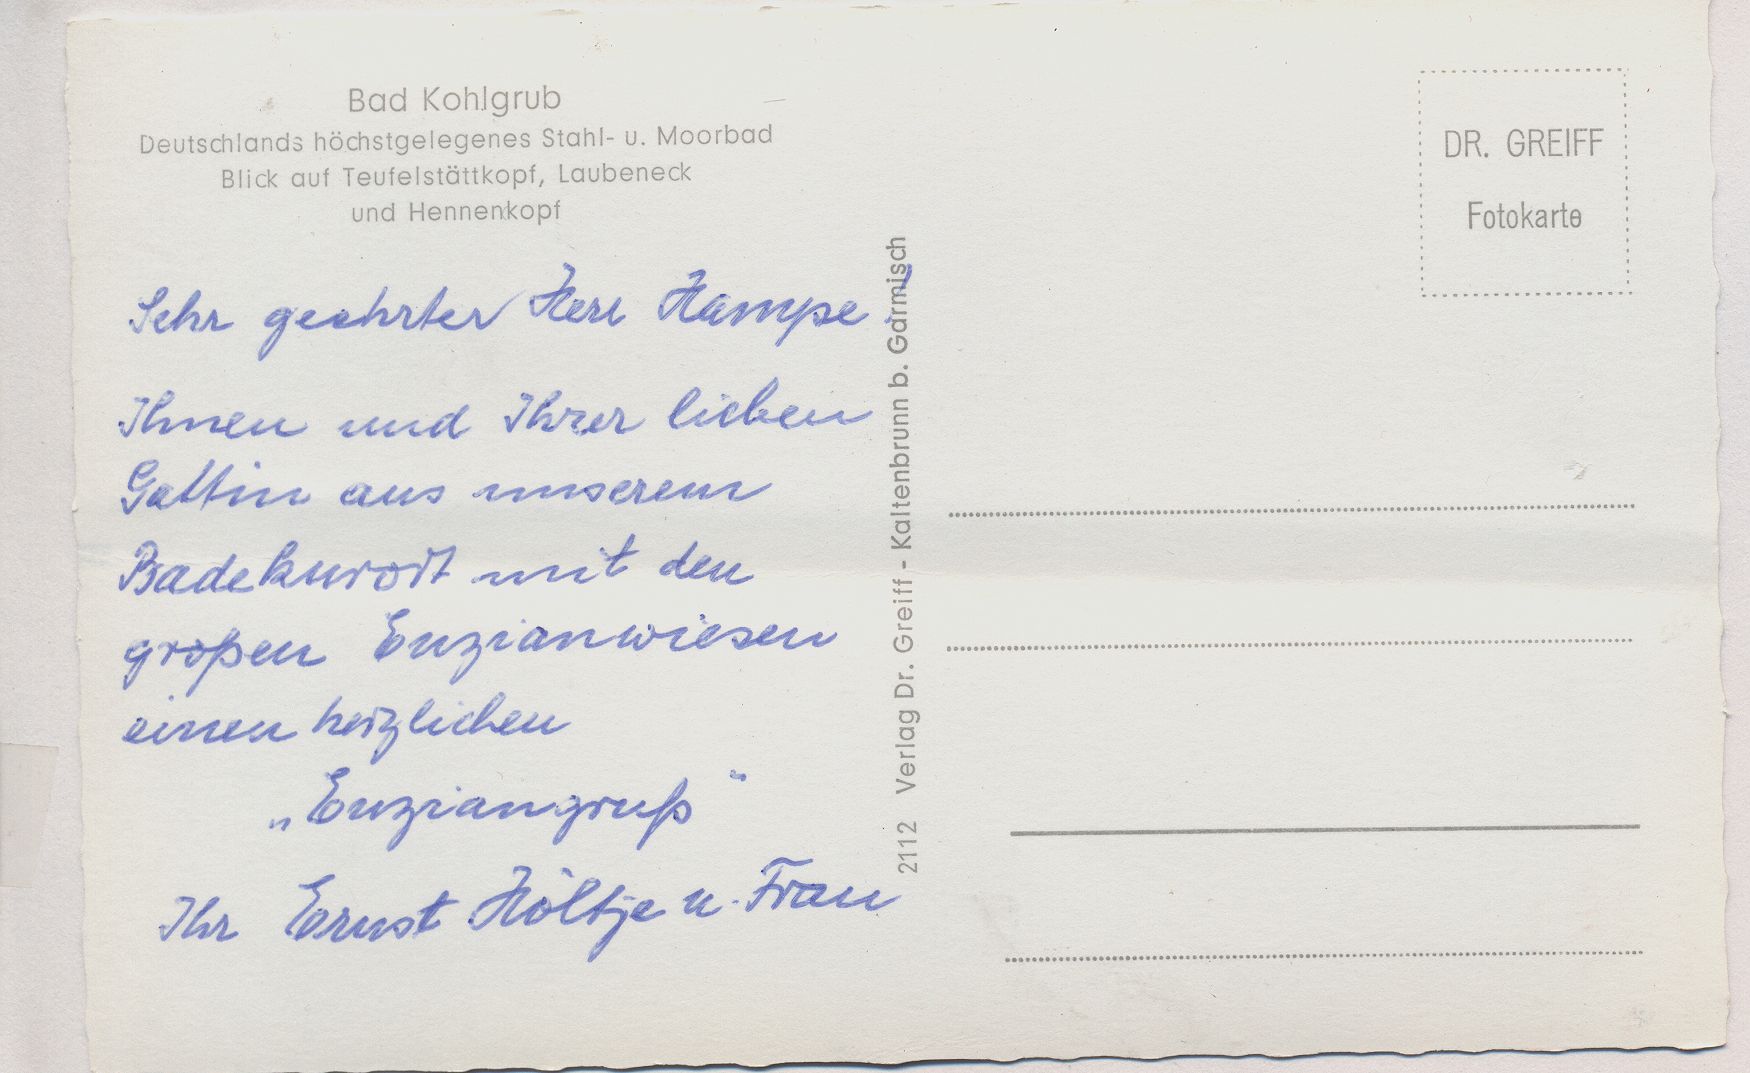 Bad Kohlgrub
Deutschlands höchstgelegenes Stahl- u. Moorbad
Blick auf Teufelstättkopf, Laubeneck
und Hennenkopf
Sehr geehrter Herr Hampe!
Ihnen und Ihrer lieben
Gattin aus unserem
Badekurort mit den
großen Enzianwiesen
einen herzlichen
„Enziangruß"
Ihr Ernst Höltje u. Frau
2112 Verlag Dr. Greiff - Kaltenbrunn b. Garmisch
DR. GREIFF
Fotokarte